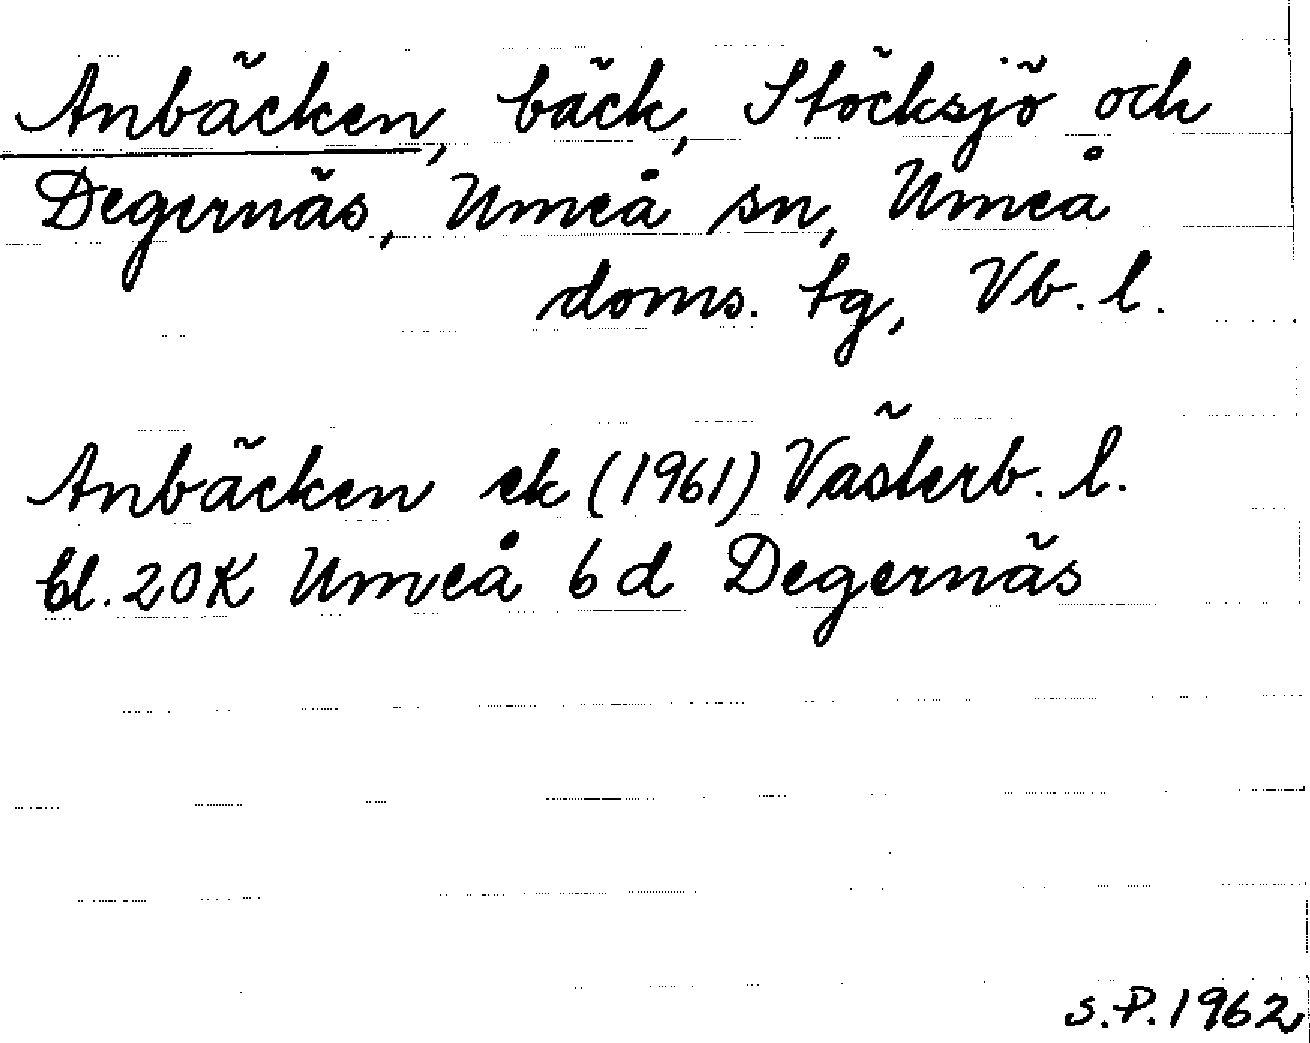 Anbäcken, bäck, Stöcksjö och
Degernäs, Umeå sn, Umeå
doms. tg, Vb. l.
Anbäcken ek (1961) Västerb. l.
bl. 20K Umeå 6d Degernäs
S.P. 1962